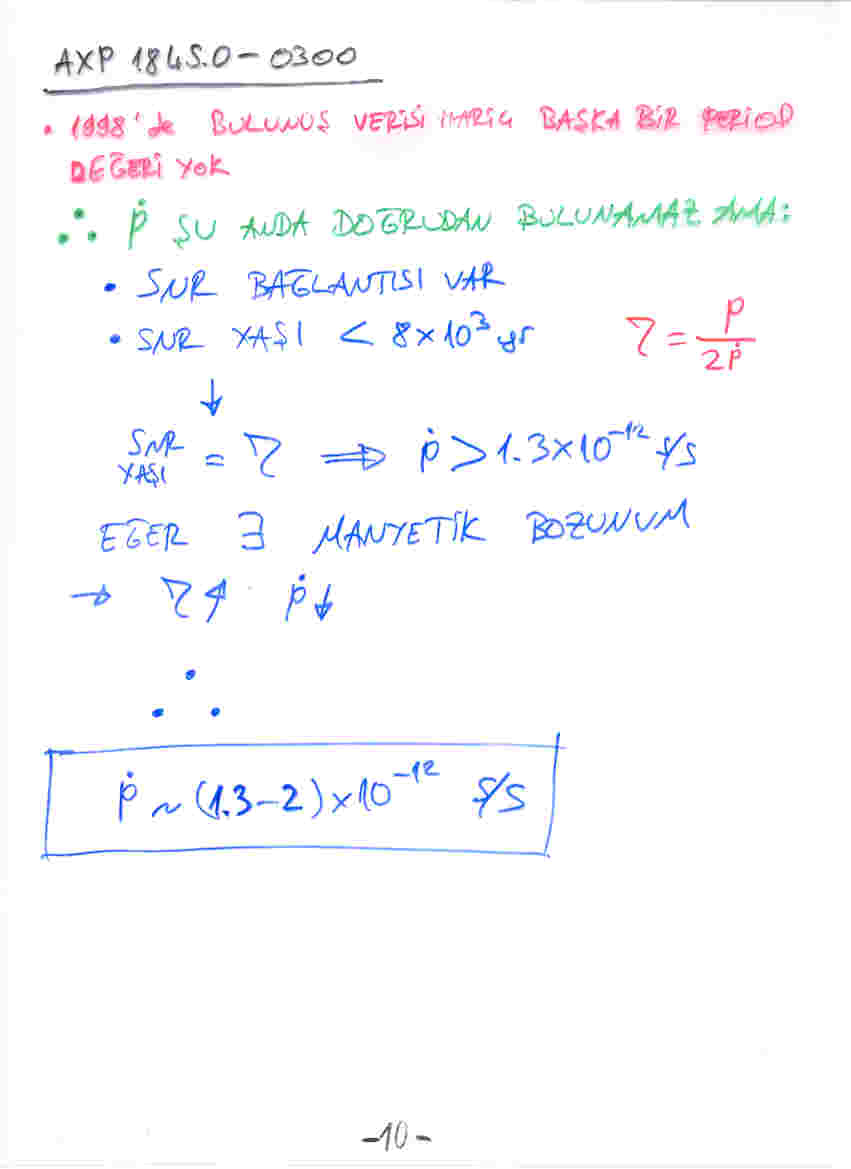 AXP 1845.0-0300
• 1998'de BULUNUŞ VERİSİ HARİÇ BAŞKA BİR PERIOD
DEĞERİ YOK
∴ Ṗ ŞU ANDA DOĞRUDAN BULUNAMAZ AMA:
• SNR BAĞLANTISI VAR
• SNR YAŞI < 8×10³ yr τ = P/2Ṗ
↓
SNR YAŞI = τ ⟹ Ṗ > 1.3×10⁻¹² s/s
EĞER ∃ MANYETİK BOZUNUM
→ τ↑ Ṗ↓
∴
Ṗ ~ (1.3-2)×10⁻¹² s/s
-10-